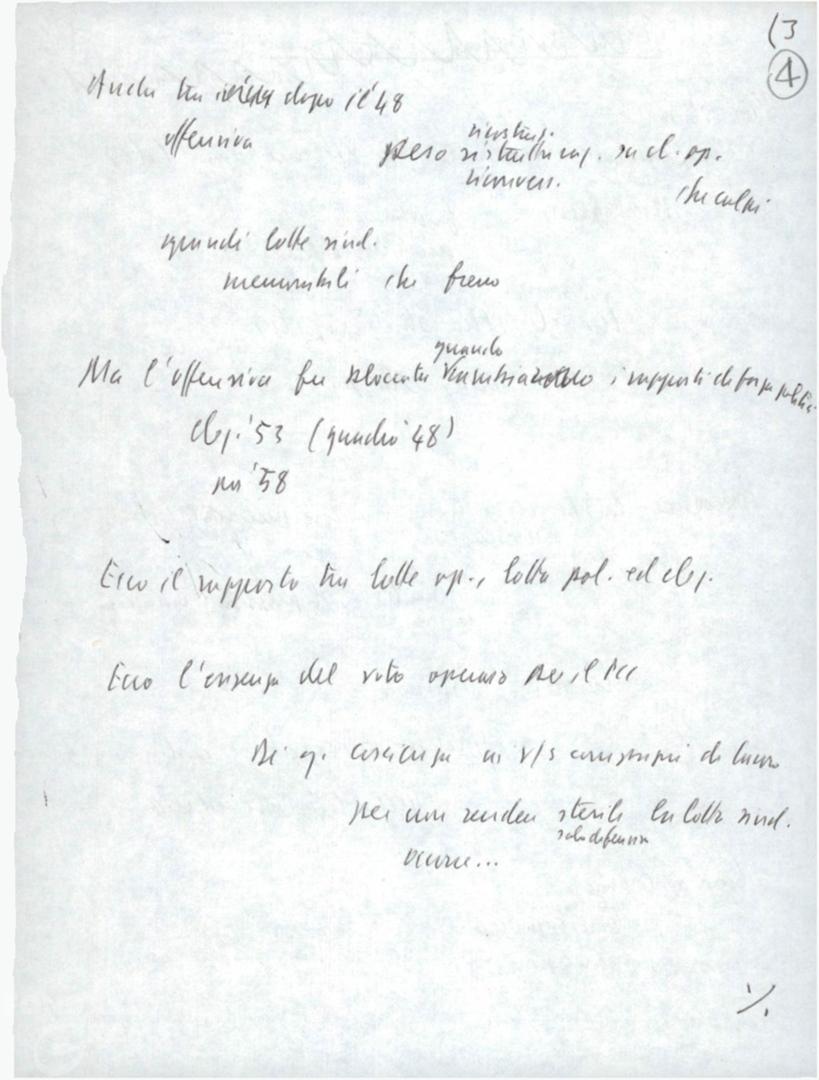 (3
4
Anche tra dopo il '48
offensiva
ricostruz.
peso ristrutturaz. su cl. op.
riconvers.
che colpì
quindi lotte sind.
memorabili che freno
quando
Ma l'offensiva fu bloccata i rapporti di forza politici
elez. '53 (quadro '48)
poi '58
Ecco il rapporto tra lotte op., lotta pol. ed elez.
Ecco l'essenza del voto operaio per il PCI
Di q. coscienza ai v/s compagni di lavoro
per non rendere sterile la lotta sind.
solo difensiva
occorre...
%.